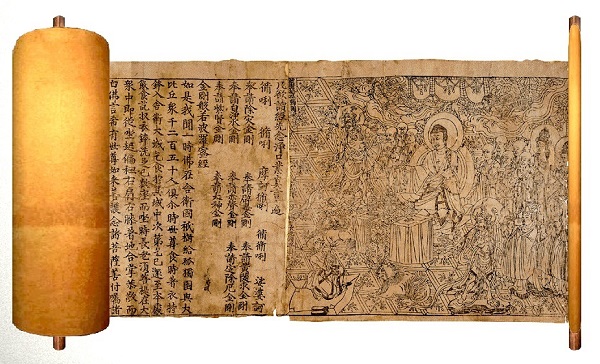 凡欲讀經先念淨口業真言一遍
脩唎 脩唎 摩訶脩唎 脩脩唎 娑婆訶
奉請除災金剛 奉請辟毒金剛 奉請黃隨求金剛
奉請白淨水金剛 奉請赤聲金剛 奉請定除厄金剛
奉請紫賢金剛 奉請大神金剛
金剛般若波羅蜜經
如是我聞一時佛在舍衛國祇樹給孤獨園與大
比丘衆千二百五十人俱尒時世尊食時著衣持
鉢入舍衛大城乞食於其城中次第乞已還至本處
飯食訖收衣鉢洗足已敷座而坐時長老須菩提在大
衆中即從座起偏袒右肩右膝著地合掌恭敬而
白佛言希有世尊如來善護念諸菩薩善付囑諸